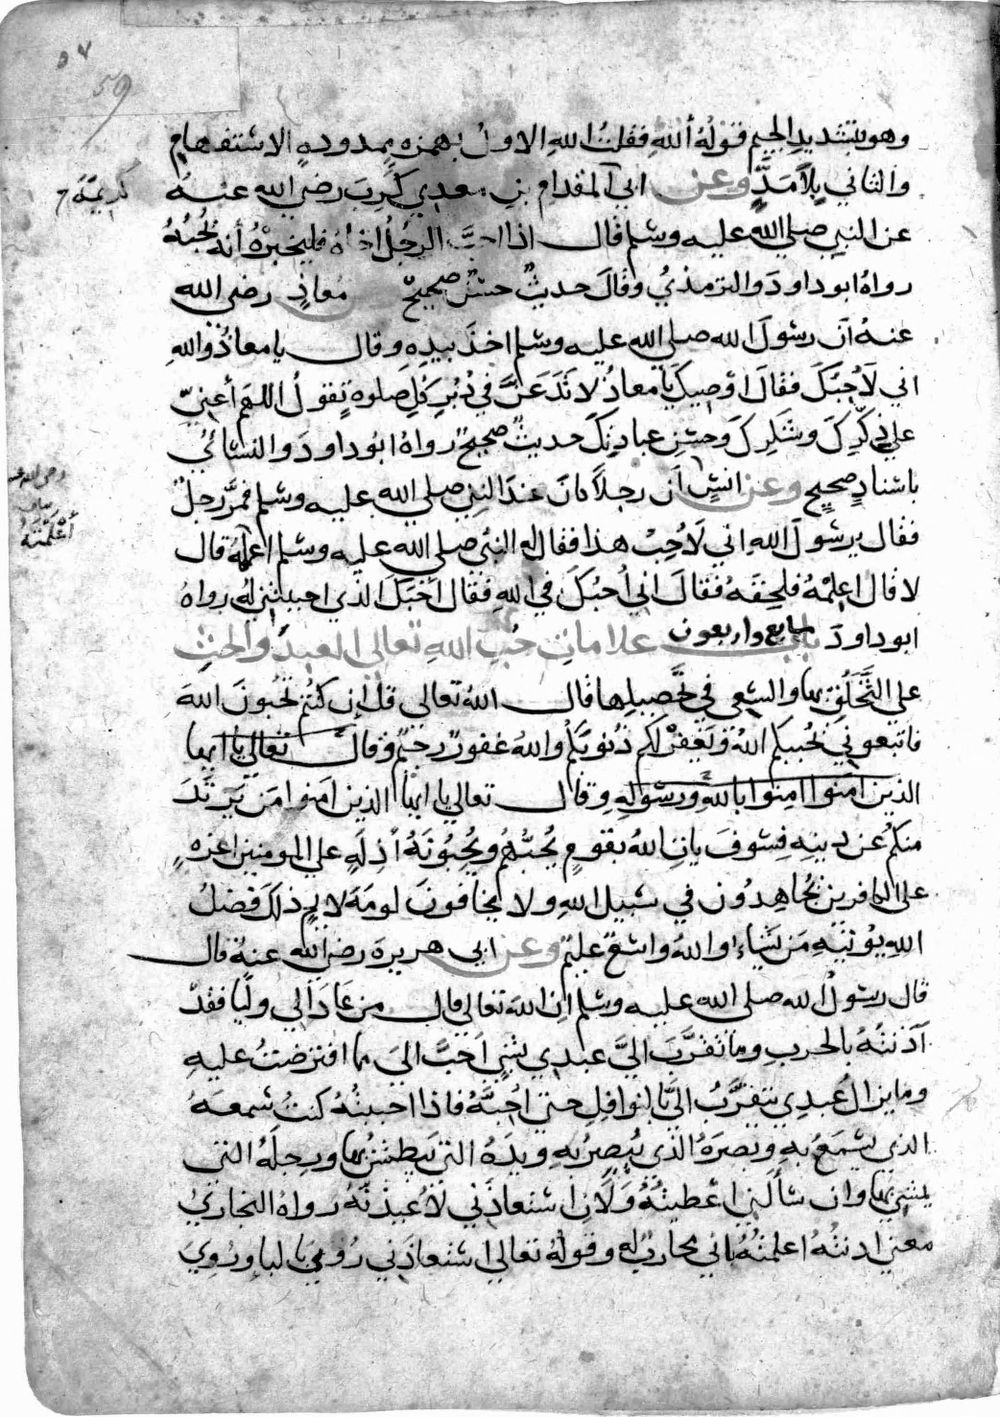 ٥٧
59
وهو بتشديد الجيم قوله أالله فقلت الله الاول بهمزه ممدوده الاستفهام
والثاني بلا مَدٍّ وعن ابي المقدام بن معدي كرب رضي الله عنه
عن النبي صلي الله عليه وسلم قال اذا احبَّ الرجلُ اخاه فليخبرْهُ أنه يحبُّهُ
رواهُ ابوداود والترمذيُّ وقالَ حديثٌ حسنٌ صحيحٌ معاذٍ رضي الله
عنهُ ان رسولَ الله صلي الله عليه وسلم اخذ بيدِه وقال يا معاذُ والله
اني لاُحبكَ فقالَ اوصيكَ يا معاذُ لا تدَعَنَّ في دُبُرِ كلِ صلوهٍ تقولُ اللهم أعنيّ
علي ذِكرِكَ وشكرِكَ وحسنِ عبادتِكَ حديثٌ صحيحٌ رواهُ ابوداودَ والنسائيُ
باسنادٍ صحيحٍ وعن انسٍ أن رجلاً كانَ عندَ النبيِ صلي الله عليه وسلم فمَرَّ رجلٌ
فقال يرسولَ اللهِ اني لاَُحِبُّ هذا فقال له النبيُ صلي الله عليه وسلم اعلمتَهُ قال
لا قال اعلِمْهُ فلحِقَهُ فقالَ اني اُحبُكَ في اللهِ فقال احبَّكَ الذي احببتني لهُ رواهُ
ابوداودَ باب سابع واربعون علاماتِ حُبِ اللهِ تعالي العبدَ والحثِ
على التَّخَلُّقِ بها والسعي في تحصيلِها قال اللهُ تعالي قل إن كنتُم تحبونَ اللهَ
فاتبعوني يُحببكم اللهُ ويغفِرْ لكم ذنوبَكم واللهُ غفورٌ رحيمٌ وقال تعالي يا ايها
الذين امنوا امِنوا بالله ورسولِهِ وقال تعالي يا ايها الذين امنوا من يَرتَدَ
منكم عن دينِهِ فسوفَ ياتي اللهُ بقومٍ يُحِبُّهُم ويُحِبُّونَهُ أذِلَةٍ علي المومنين اعزهٍ
علي الكافرين يُجاهِدُون في سبيلِ اللهِ ولا يخافونَ لومَةَ لايمٍ ذلكَ فضلُ
اللهِ يؤتيهِ مَن يشاء واللهُ واسعٌ عليمٌ وعن ابي هريرة رضي الله عنهُ قال
قال رسولُ الله صلي الله عليه وسلم ان الله تعالي قال من عَادَا لي وليًا فقدْ
آذنتُهُ بالحربِ وما تقرَّبَ اليَّ عبدي بشيٍ احبَّ اليَ مما افترضتُ عليهِ
وما يزالُ عبدي يتقرَّبُ اليَّ بالنوافلِ حتي اُحِبَّهُ فاذا احببتُهُ كنتُ سمعَهُ
الذي يسمَعُ بهِ وبصرَهُ الذي يُبصِرُ بهِ ويدَهُ التي يَبطِشُ بها ورِجلَهُ التي
يمشي بها وان سأَلَني اعْطيتُهُ وَلَاِن استعاذَني لاُعيذنّهُ رواهُ البخاريُ
معني اذنتُهُ اعلمتُهُ باني محاربٌ له وقولُهُ تعالي استعاذَني رُويَ بالباءِ ورُوِيَ
كريمة
رضي الله عنه
أعْلَمْتَهُ